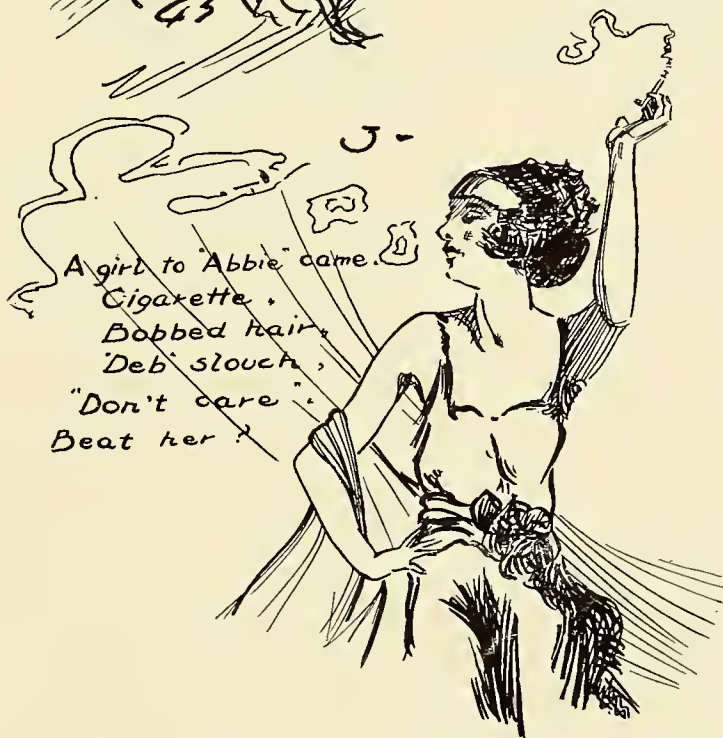 43
J-
A girl to "Abbie" came.
Cigarette.
Bobbed hair,
"Deb" slouch,
"Don't care".
Beat her?